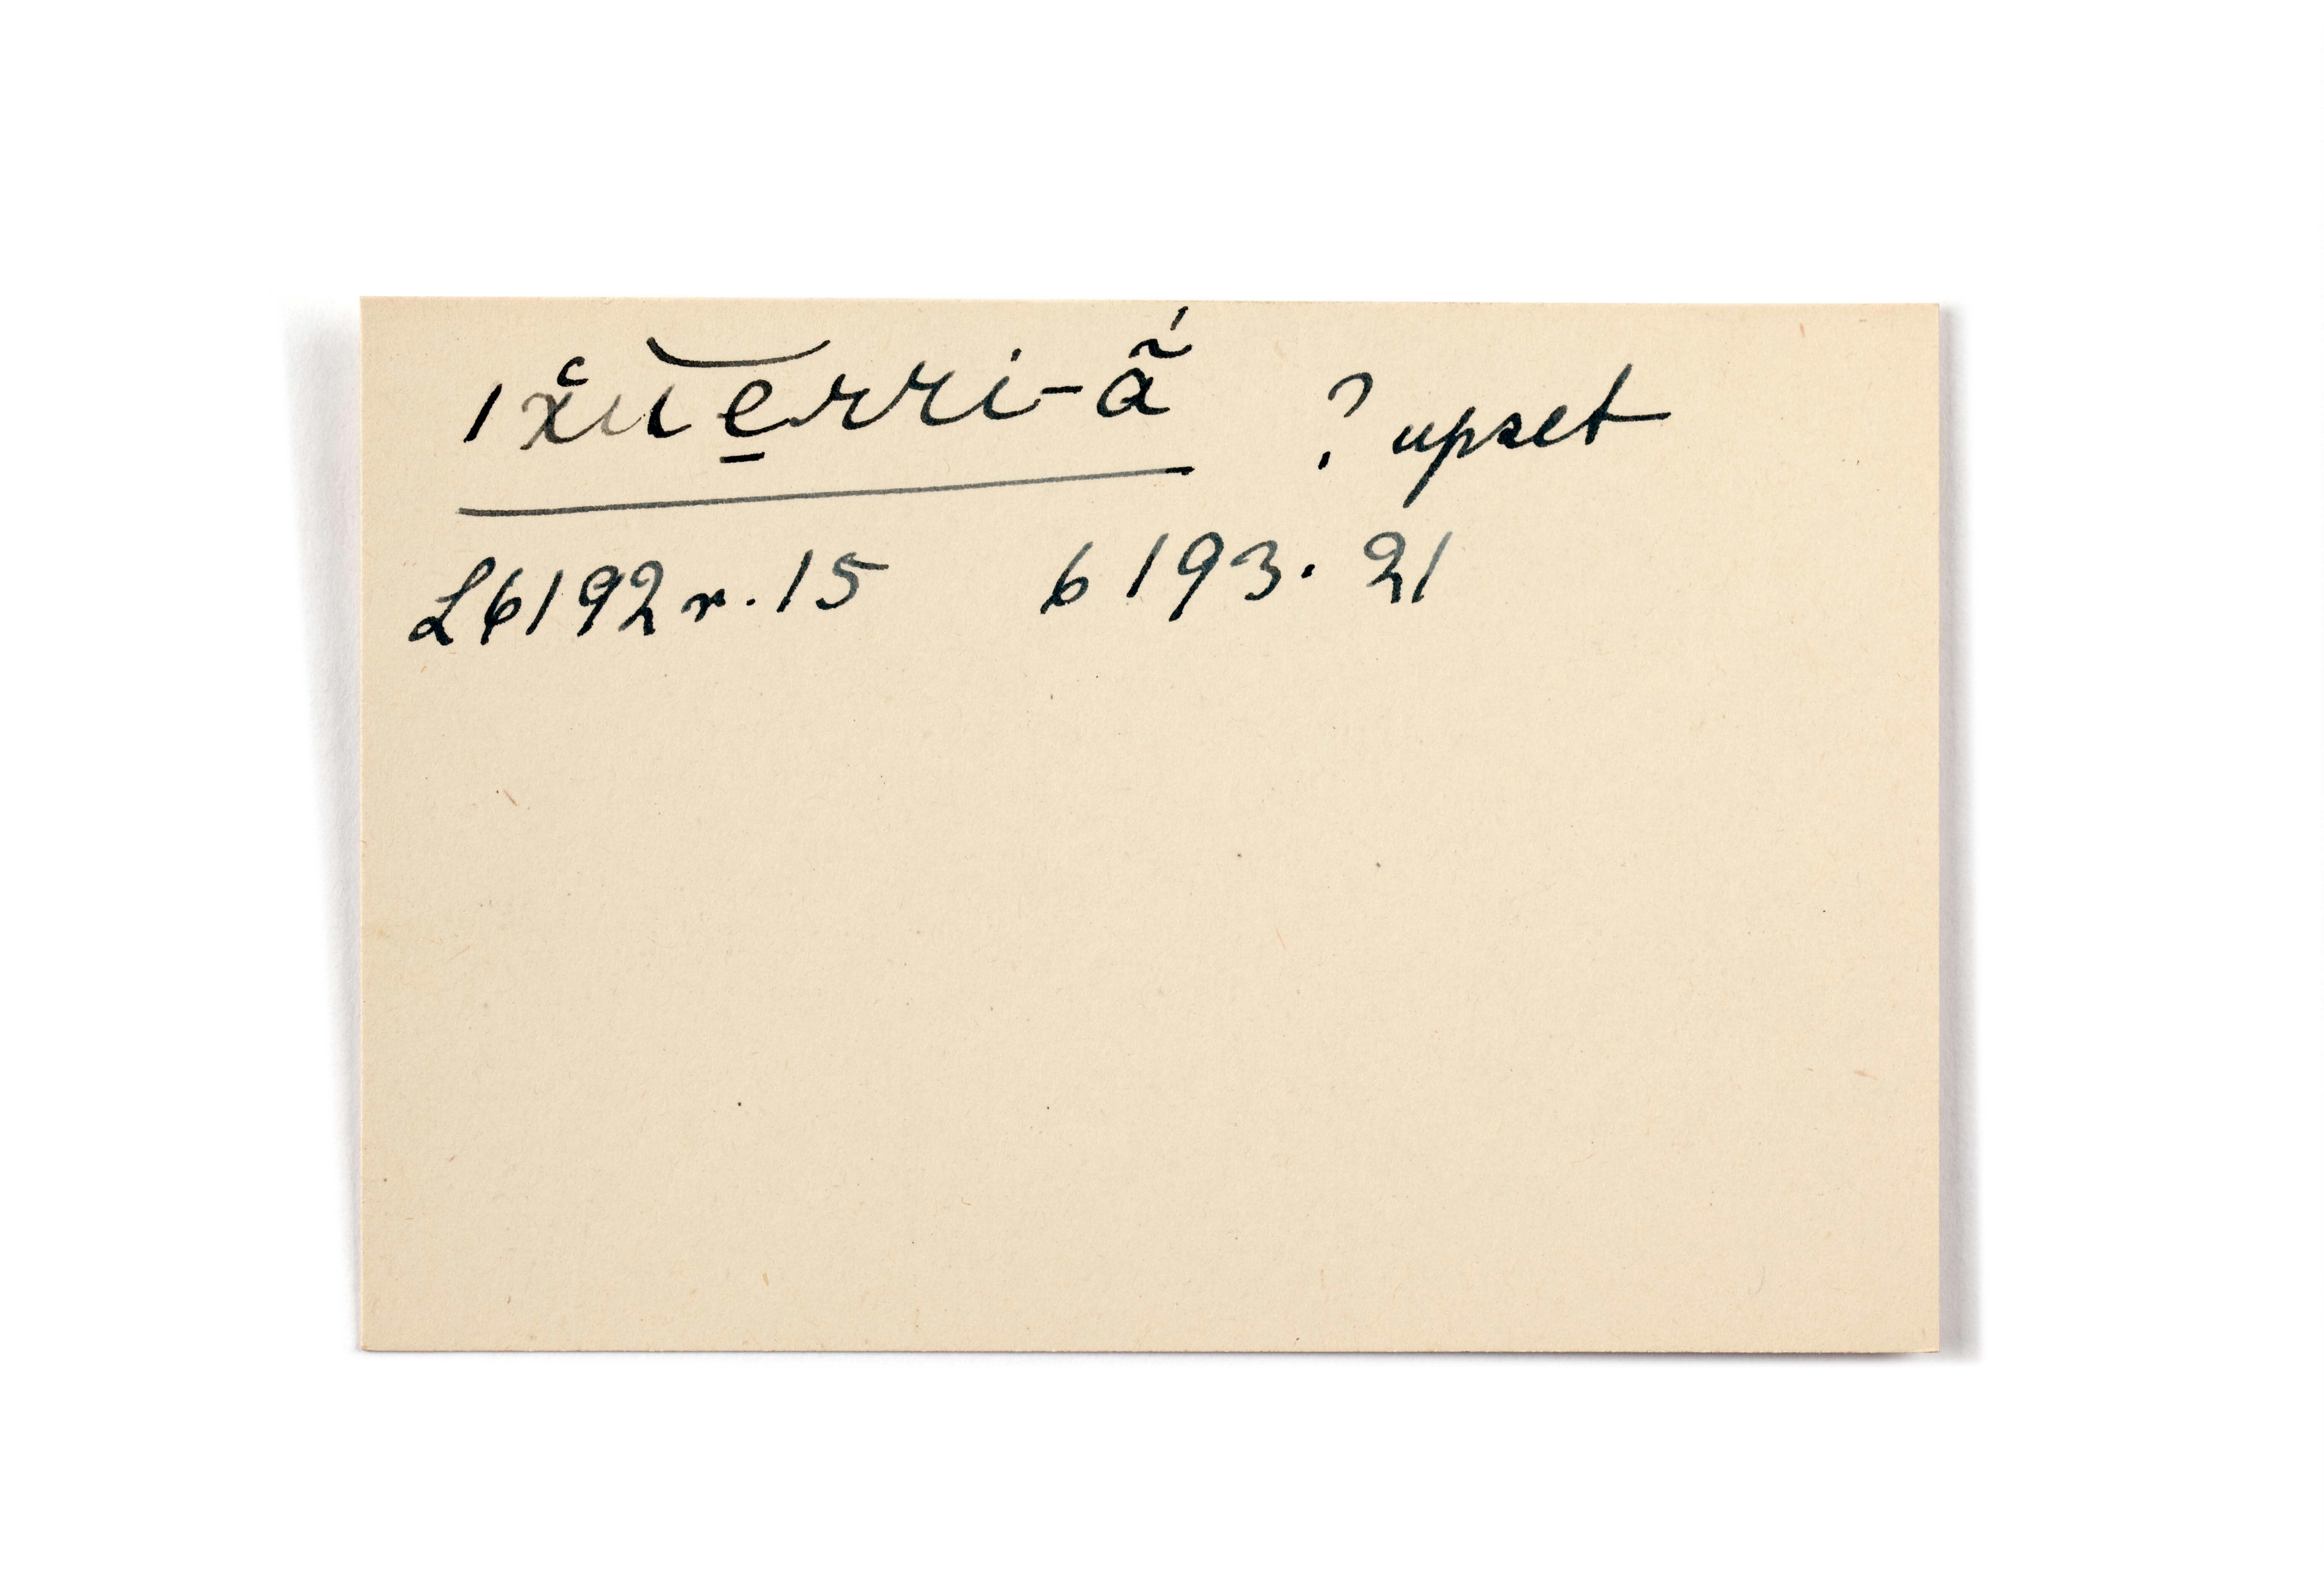 /x̌u͡e̱rri-ã́ ? upset
L6192r.15 6193.21